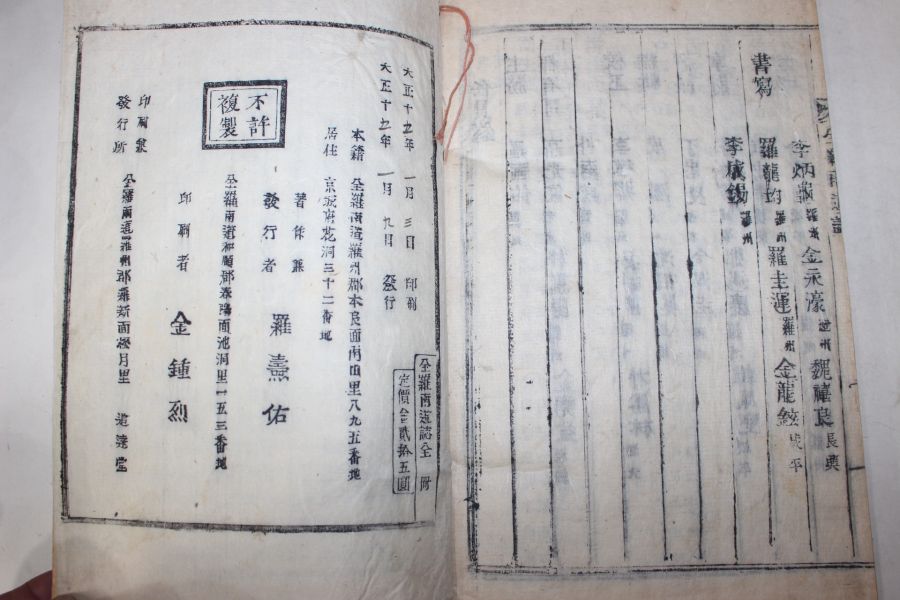 書寫
李炳 羅州 金永濠 光州 魏禧良 長興
羅龍均 羅州 羅圭運 羅州 金龍鉉 咸平
李成錫 羅州
全羅南道誌全 附
定價金貳拾五圓
大正十五年 一月 三日 印刷
大正十五年 一月 九日 發行
本籍 全羅南道羅州郡本良面南山里八九五番地
居住 京城府花洞三十二番地
著作兼
發行者 羅燾佑
不許
複製
全羅南道和順郡春陽面池洞里一五三番地
印刷者 金鍾烈
印刷兼
發行所 全羅南道羅州郡羅新面松月里 道達堂